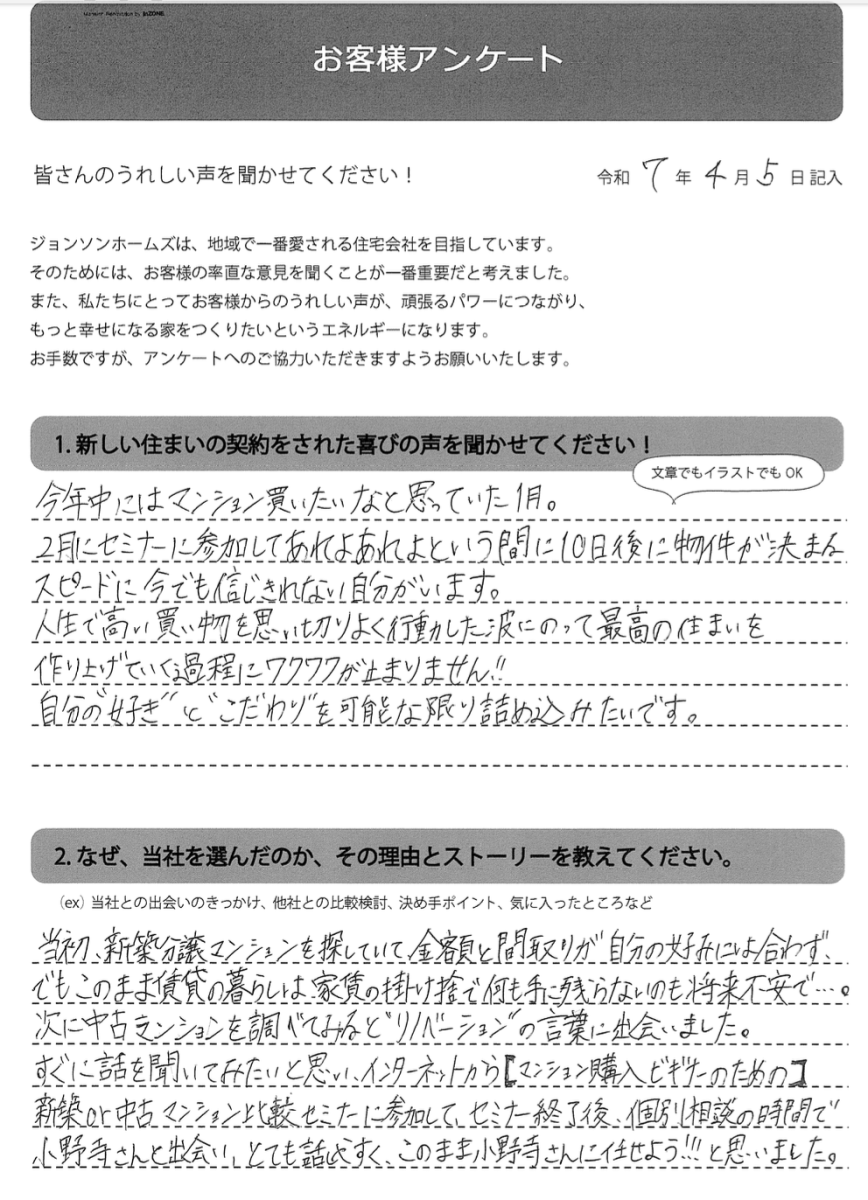 by INZONE
お客様アンケート
皆さんのうれしい声を聞かせてください！
令和 7 年 4 月 5 日 記入
ジョンソンホームズは、地域で一番愛される住宅会社を目指しています。
そのためには、お客様の率直な意見を聞くことが一番重要だと考えました。
また、私たちにとってお客様からのうれしい声が、頑張るパワーにつながり、
もっと幸せになる家をつくりたいというエネルギーになります。
お手数ですが、アンケートへのご協力いただきますようお願いいたします。
1. 新しい住まいの契約をされた喜びの声を聞かせてください！
文章でもイラストでも OK
今年中にはマンション買いたいなと思っていた1月。
2月にセミナーに参加してあれよあれよという間に10日後に物件が決まる
スピードに今でも信じきれない自分がいます。
人生で高い買い物を思い切りよく行動した波にのって最高の住まいを
作り上げていく過程にワクワクが止まりません!!
自分の"好き"と"こだわり"を可能な限り詰め込みたいです。
2. なぜ、当社を選んだのか、その理由とストーリーを教えてください。
（ex）当社との出会いのきっかけ、他社との比較検討、決め手ポイント、気に入ったところなど
当初、新築分譲マンションを探していて、金額と間取りが自分の好みには合わず、
でもこのまま賃貸の暮らしは、家賃の掛け捨で何も手に残らないのも将来不安で…。
次に中古マンションを調べてみると"リノベーション"の言葉に出会いました。
すぐに話を聞いてみたいと思い、インターネットから【マンション購入ビギナーのための】
新築or中古マンション比較セミナーに参加して、セミナー終了後、個別相談の時間で
小野寺さんと出会い、とても話しやすく、このまま小野寺さんに任せよう!!!と思いました。